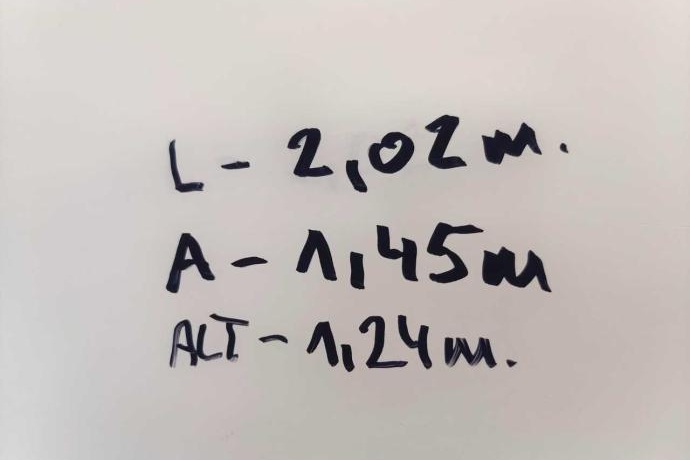 L - 2,02 m.
A - 1,45 m
ALT - 1,24 m.